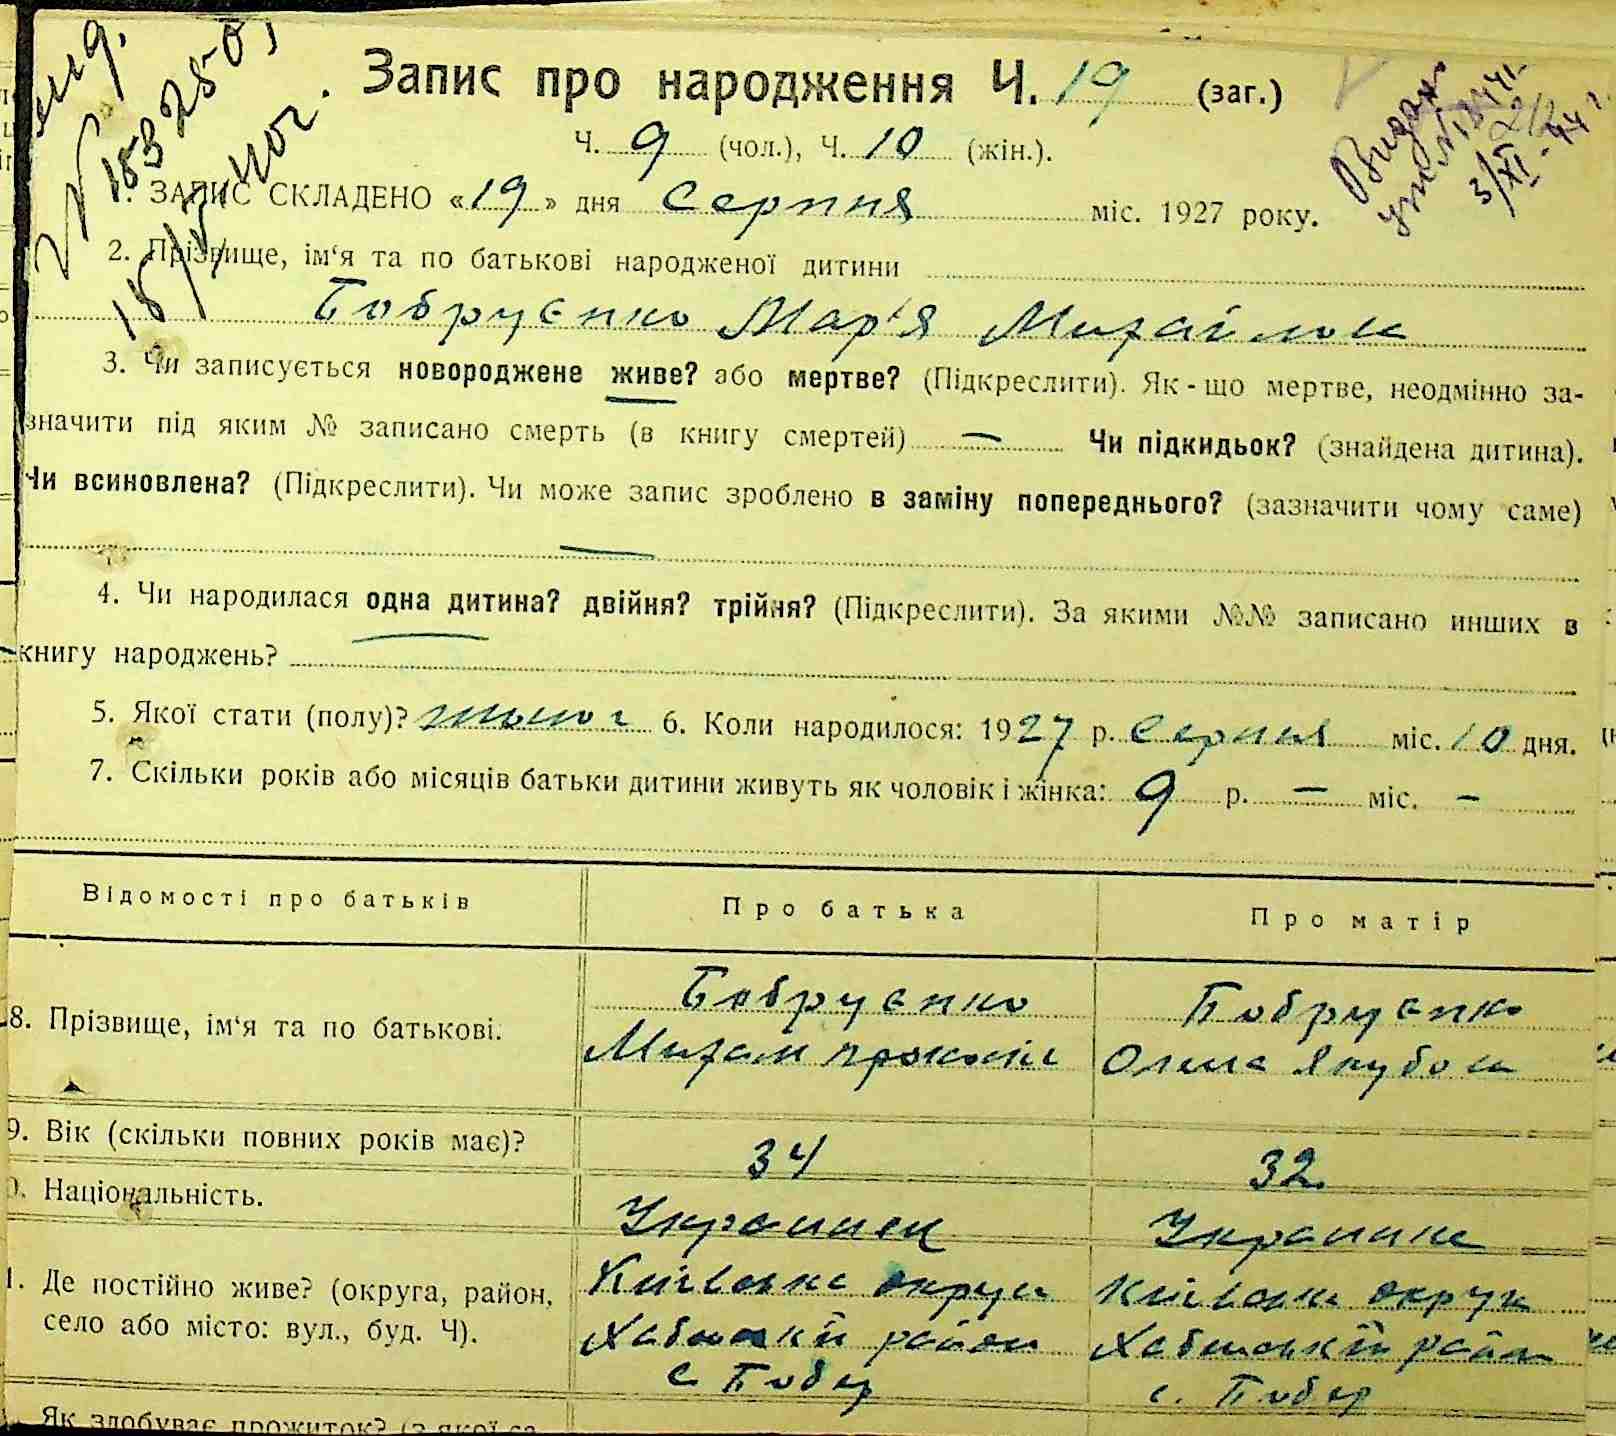 Запис про народження Ч. 19 (заг.)
Ч. 9 (чол.), Ч. 10 (жін.).
1. ЗАПИС СКЛАДЕНО «19» дня Серпня міс. 1927 року.
2. Прізвище, ім'я та по батькові народженої дитини
Бобруєнко Мар'я Михайлов
3. Чи записується новороджене живе? або мертве? (Підкреслити). Як-що мертве, неодмінно за-
значити під яким № записано смерть (в книгу смертей) — Чи підкидьок? (знайдена дитина).
Чи всиновлена? (Підкреслити). Чи може запис зроблено в заміну попереднього? (зазначити чому саме)
—
4. Чи народилася одна дитина? двійня? трійня? (Підкреслити). За якими №№ записано инших в
книгу народжень?
5. Якої стати (полу)? 6. Коли народилося: 1927 р. Серпня міс. 10 дня.
7. Скільки років або місяців батьки дитини живуть як чоловік і жінка: 9 р. — міс. —
Відомості про батьків Про батька Про матір
8. Прізвище, ім'я та по батькові. Бобруєнко Бобруєнко
Олена Якубов
9. Вік (скільки повних років має)? 34 32
Національність. Украинец Украинка
Де постійно живе? (округа, район, село або місто: вул., буд. Ч). Київська округа Київська округа
район Хабинський район
с Бобер с. Бобер
Як здобуває прожиток?
Видан
3/XI-44 г.